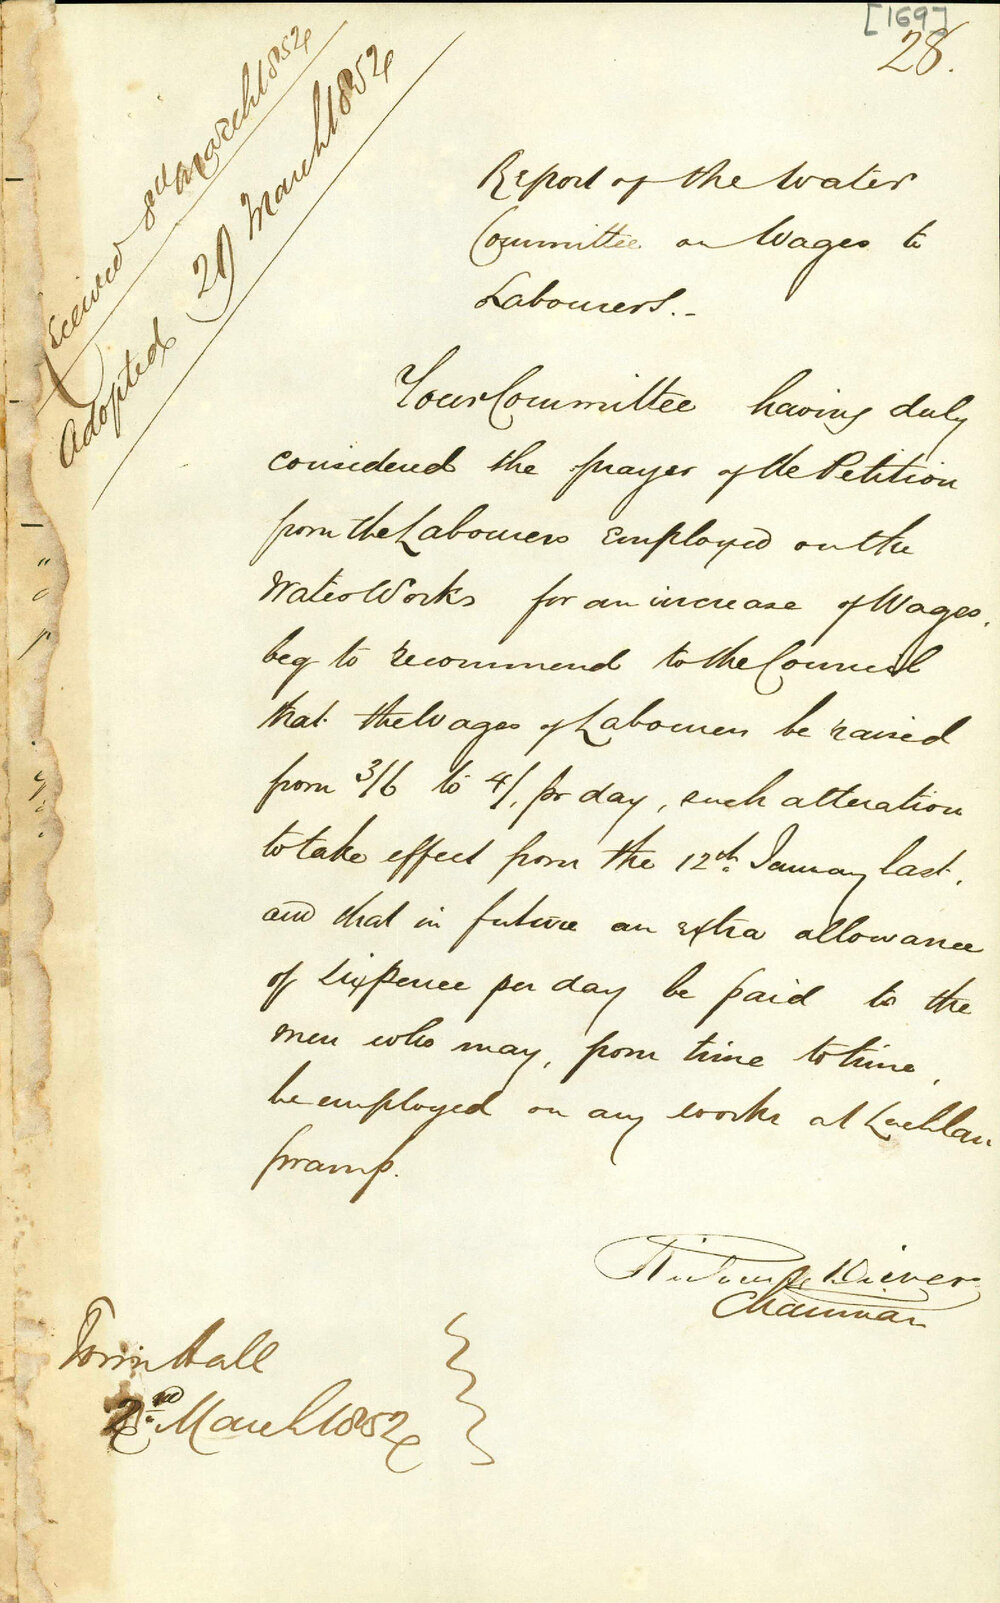 [169]
28.
Received 8th March 1852
Adopted 29 March 1852
Report of the Water
Committee on Wages to
Labourers.-
Your Committee having duly
considered the prayer of the Petition
from the Labourers employed on the
Water Works for an increase of Wages,
beg to recommend to the Council
that the Wages of Labourers be raised
from 3/6 to 4/. pr day, such alteration
to take effect from the 12th. January last,
and that in future an extra allowance
of Sixpence per day be paid to the
men who may, from time to time,
be employed on any works at Lachlan
Swamp.
Chairman
Town Hall
2nd March 1852